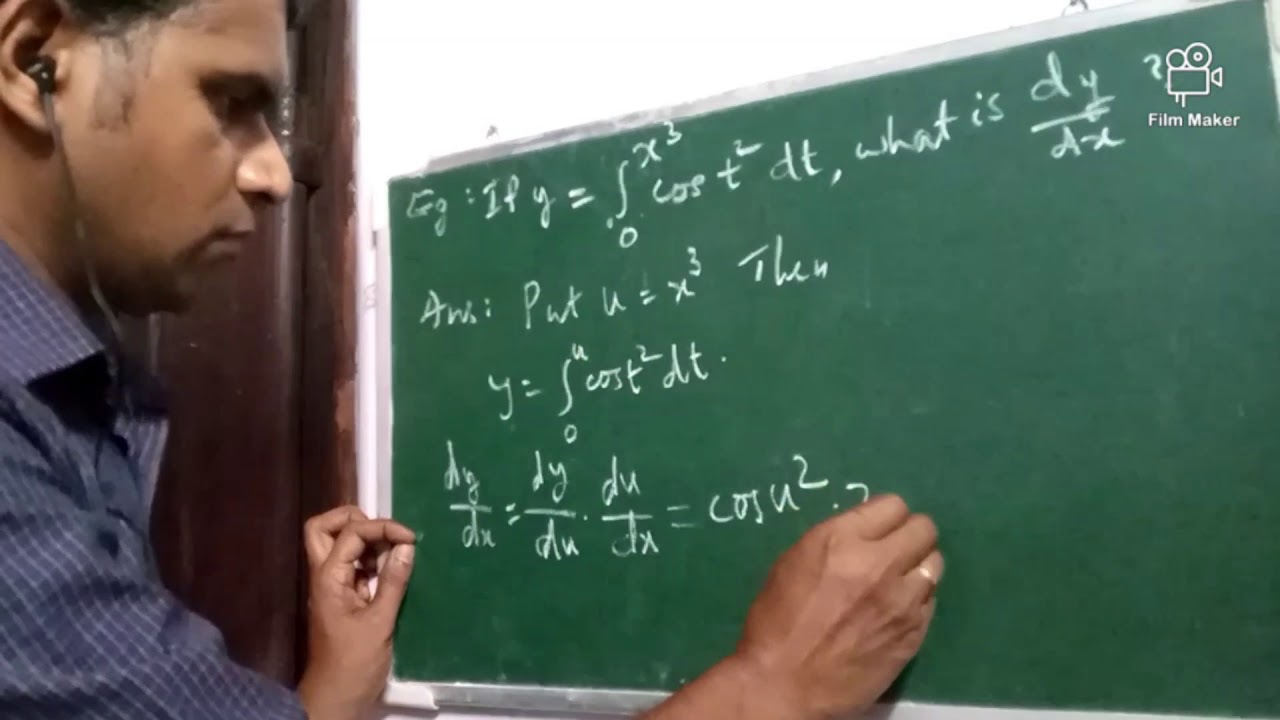 Eg: If y = ∫₀^{x³} cos t² dt, what is dy/dx ?
Film Maker
Ans: Put u = x³ Then
y = ∫₀^{u} cos t² dt.
dy/dx = dy/du · du/dx = cos u² ·